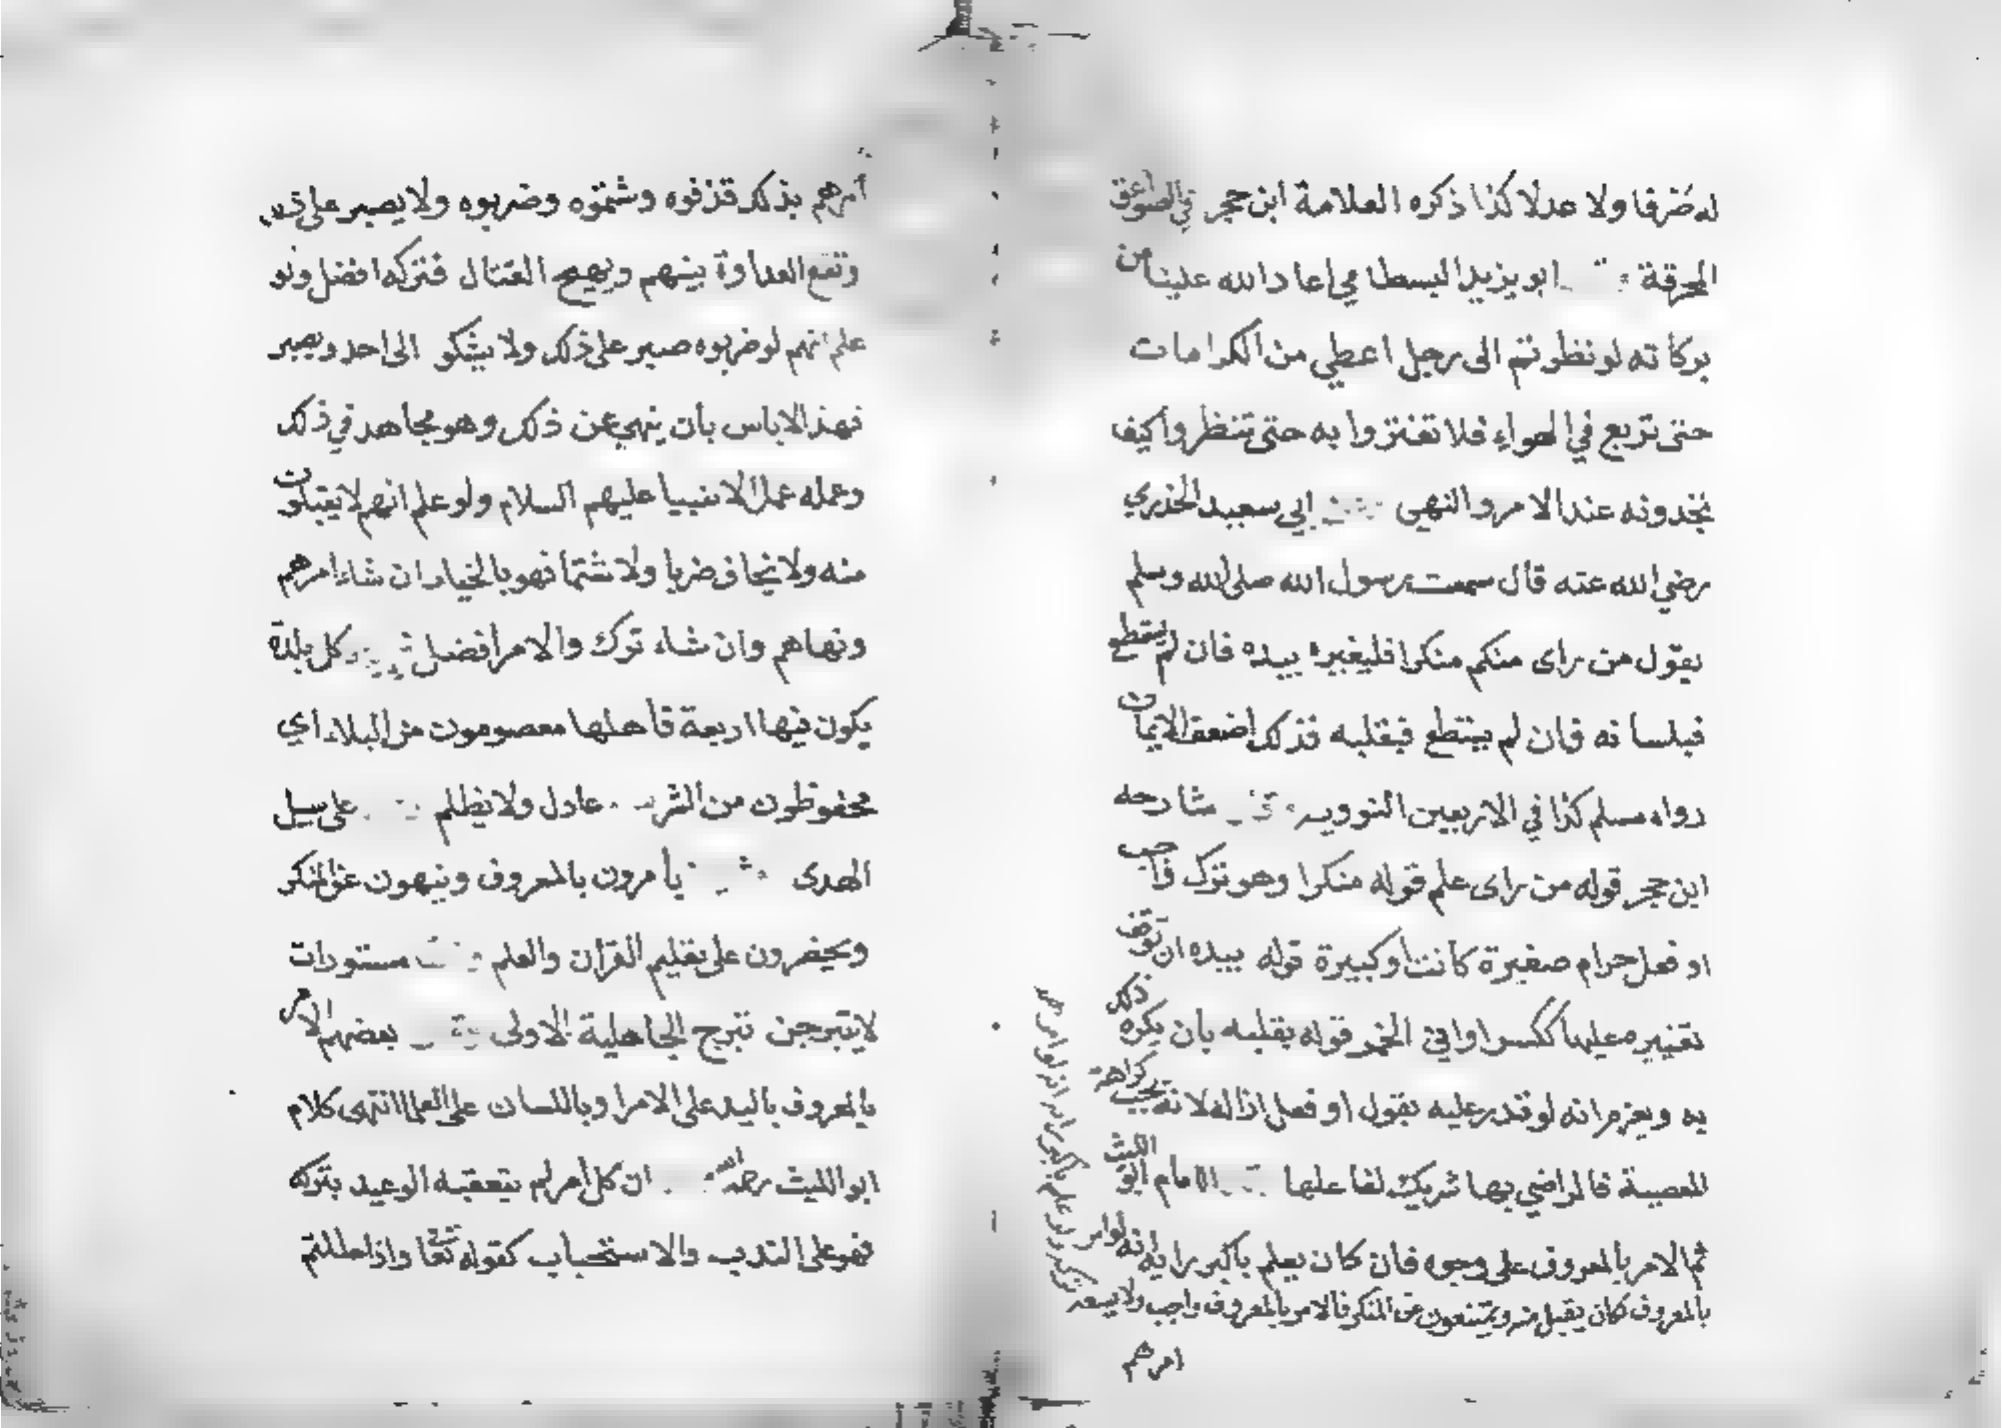 له صرفا ولا عدلا كذا ذكره العلامة ابن حجر في الصواعق
المحرقة ابو يزيد البسطامي اعاد الله علينا من
بركاته لو نظرتم الى رجل اعطي من الكرامات
حتى تربع في الهواء فلا تغتروا به حتى تنظروا كيف
تجدونه عند الامر والنهي ابي سعيد الخذري
رضي الله عنه قال سمعت رسول الله صلى الله وسلم
يقول من راى منكم منكرا فليغيره بيده فان لم يستطع
فبلسانه فان لم يستطع فبقلبه فذلك اضعف الايمان
رواه مسلم كذا في الاربعين النوويه شارحه
ابن حجر قوله من راى علم قوله منكرا وهو ترك واجب
او فعل حرام صغيرة كانت او كبيرة قوله بيده ان توقف
تغييره عليها ككسر اواني الخمر قوله بقلبه بان يكره ذلك
به ويعزم انه لو قدر عليه بقول او فعل ازاله لانه يجب كراهة
المعصية فالراضي بها شريك لفاعلها الامام ابو الليث
ثم الامر بالمعروف على وجوه فان كان يعلم باكبر رايه انه لو امر
بالمعروف كان يقبل منه ويمتنعون عن المنكر فالامر بالمعروف واجب ولا يسعه
تركه ولو علم باكبر رايه انه لو امرهم
امرهم
أمرهم بذلك قذفوه وشتموه وضربوه ولا يصبر على
وتقع العداوة بينهم ويهيج القتال فتركه افضل ولو
علم انهم لو ضربوه صبر على ذلك ولا يشكو الى احد ويصبر
فهذا لاباس بأن ينهى عن ذلك وهو مجاهد في ذلك
وعمله عمل الانبيا عليهم السلام ولو علم انهم لا يقبلون
منه ولا يخاف ضربا ولا شتما فهو بالخيار ان شاء امرهم
ونهاهم وان شاء ترك والامر افضل كل بلدة
يكون فيها اربعة فأهلها معصومون من البلاء اي
محفوظون من الشر عادل ولا يظلم على سبيل
الهدى يأمرون بالمعروف وينهون عن المنكر
ويحضرون على تعليم القرآن والعلم مستورات
لا يتبرجن تبرج الجاهلية الاولى بعضهم الامر
بالمعروف باليد على الامرا وباللسان على العلما انتهى كلام
ابو الليث رحمه الله ان كل امر لم يتعقبه الوعيد بتركه
فهو على الندب والاستحباب كقوله تعا واذا حللتم